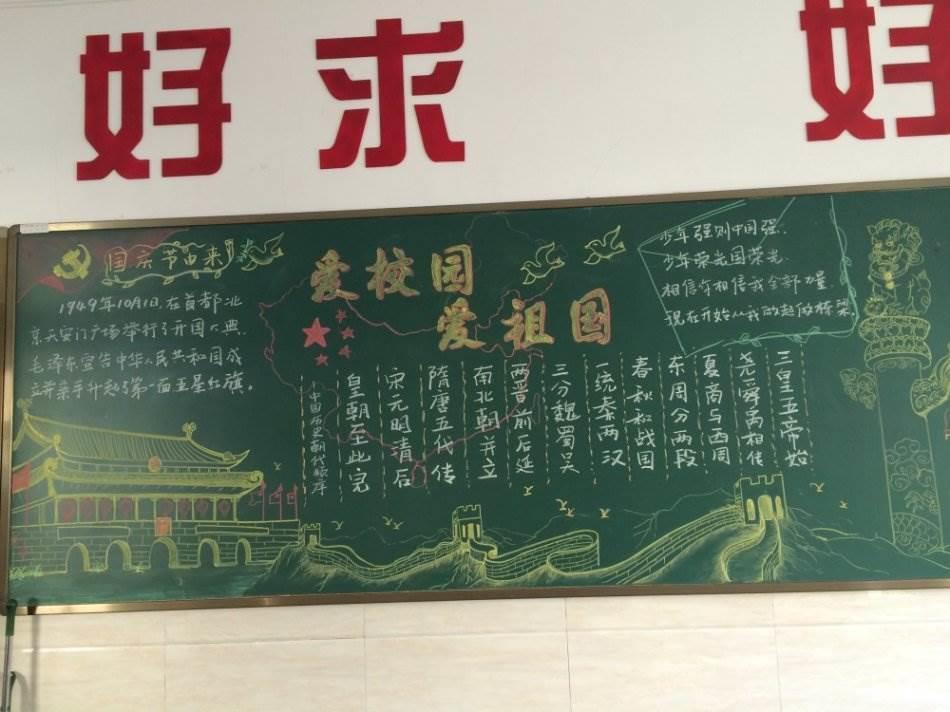 好求 好
国庆节由来
1949年10月1日,在首都北
京天安门广场举行了开国大典,
毛泽东宣告中华人民共和国成
立并亲手升起了第一面五星红旗。
爱校园
爱祖国
少年强则中国强,
少年荣光国荣光
相信你相信我全部力量,
现在开始从我做起做栋梁
三皇五帝始
尧舜禹相传
夏商与西周
东周分两段
春秋和战国
一统秦两汉
三分魏蜀吴
两晋前后延
南北朝并立
隋唐五代传
宋元明清后
皇朝至此完
中国历史朝代顺序